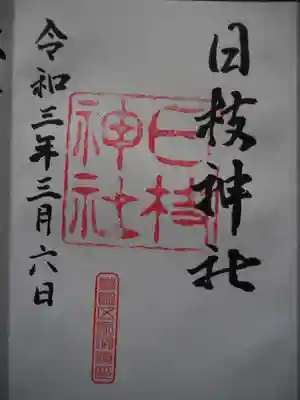 日枝神社
日枝
神社
令和三年三月六日